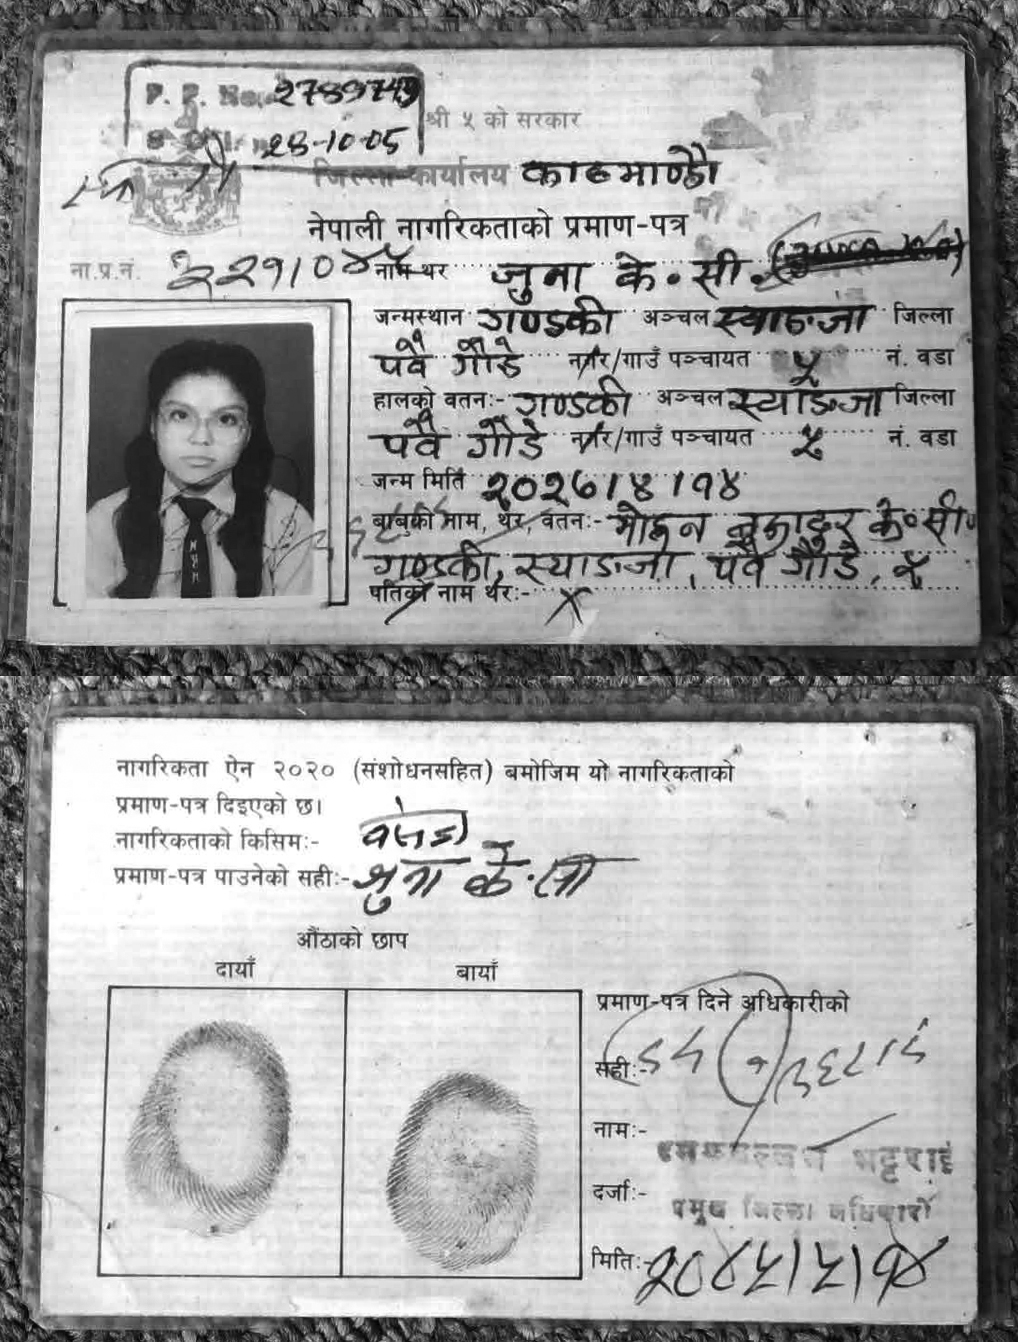 P. P. No. 2789749
28-10-05
श्री ५ को सरकार
जिल्ला कार्यालय काठमाण्डौ
नेपाली नागरिकताको प्रमाण-पत्र
ना.प्र.नं. नाम थर जुना के. सी.
जन्मस्थान गण्डकी अञ्चल स्याङजा जिल्ला
पवै गौडे नगर/गाउँ पञ्चायत ५ नं. वडा
हालको वतन:- गण्डकी अञ्चल स्याङजा जिल्ला
पवै गौडे नगर/गाउँ पञ्चायत ५ नं. वडा
जन्म मिति २०२६।४।१४
बाबुको नाम, थर, वतन:- मोहन बहादुर के. सी.
गण्डकी, स्याङजा, पवै गौडे, ५
पतिको नाम थर:- x
नागरिकता ऐन २०२० (संशोधनसहित) बमोजिम यो नागरिकताको
प्रमाण-पत्र दिइएको छ।
नागरिकताको किसिम:- वंशज
प्रमाण-पत्र पाउनेको सही:- जुना के. सी
औंठाको छाप
दायाँ बायाँ
प्रमाण-पत्र दिने अधिकारीको
सही:-
नाम:- भट्टराई
दर्जा:- प्रमुख जिल्ला अधिकारी
मिति:- २०४५।५।१४